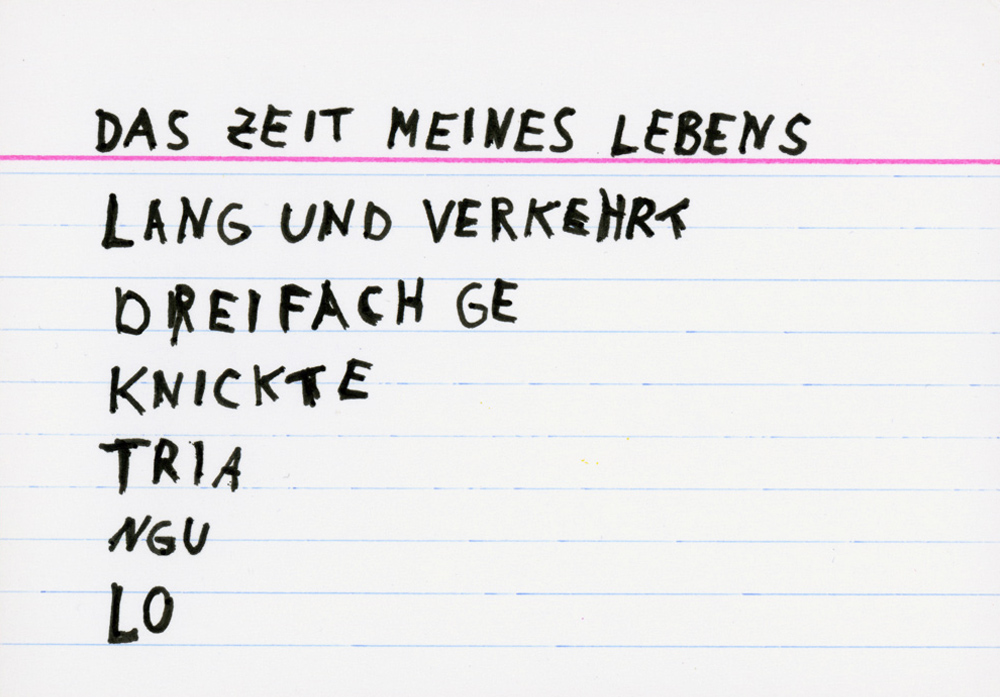 DAS ZEIT MEINES LEBENS
LANG UND VERKEHRT
DREIFACH GE
KNICKTE
TRIA
NGU
LO